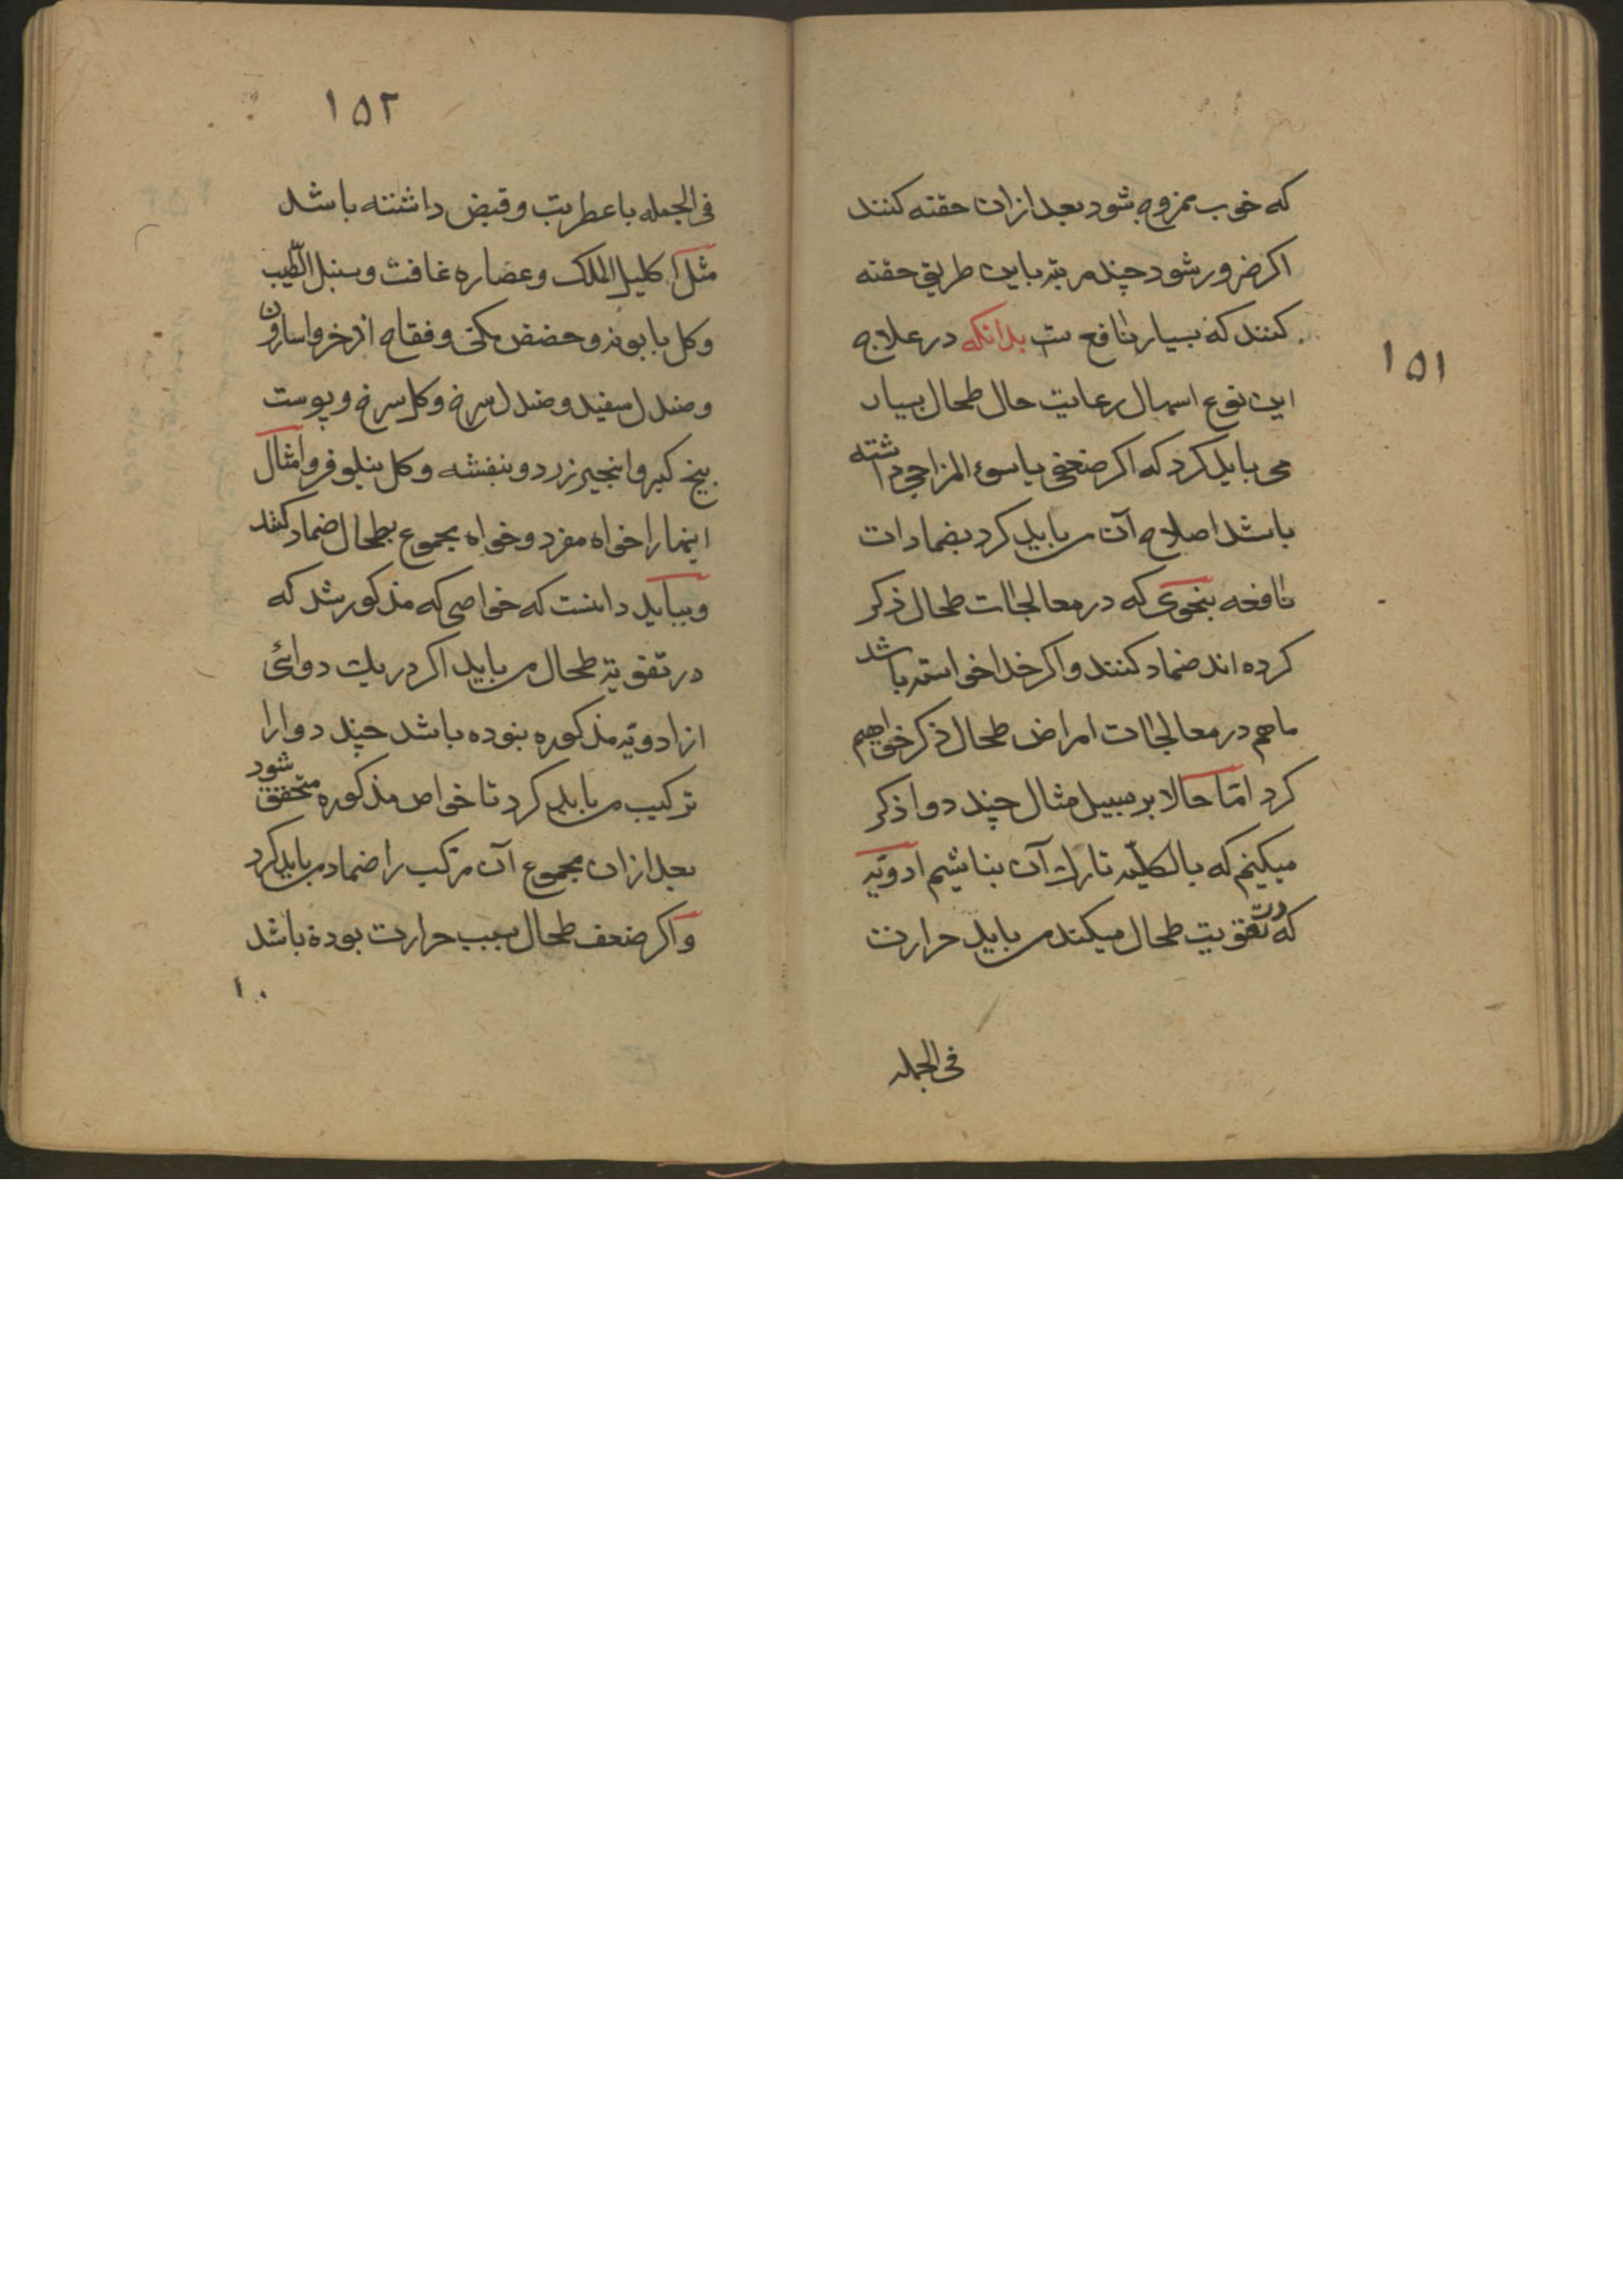 ۱۵۱
که خوب ممزوج شود بعد ازان حقنه کنند
اکر ضرور شود چند مرتبه باین طریق حقنه
کنند که بسیار نافع ست بدانکه در علاج
این نوع اسهال رعایت حال طحال بسیار
می باید کرد که اکر ضعفی یا سوء المزاجی داشته
باشد اصلاح آن می باید کرد بضمادات
نافعه بنحوی که در معالجات طحال ذکر
کرده اند ضماد کنند و اکر خدا خواسته باشد
ما هم در معالجات امراض طحال ذکر خواهیم
کرد امّا حالا بر سبیل مثال چند دوا ذکر
میکنیم که بالکلیّه تارک آن بناشیم ادویّه
که تقویت طحال میکند می باید حرارت
فی الجمله
۱۵۲
فی الجمله با عطریت و قبض داشته باشد
مثل اکلیل الملک و عصاره غافث و سنبل الطّیب
و کل بابونه و حضض مکی و فقاح اذخر و اسارون
و صندل سفید و صندل سرخ و کل سرخ و پوست
بیخ کبر و انجیر زرد و بنفشه و کل نیلوفر و امثال
اینها را خواه مفرد و خواه مجموع بطحال ضماد کنند
و بباید دانست که خواصی که مذکور شد که
در تقویة طحال می باید اکر در یک دوائی
از ادویّه مذکوره نبوده باشد چند دوا را
ترکیب می باید کرد تا خواص مذکوره متحقق شود
بعد ازان مجموع آن مرکب را ضماد می باید کرد
و اکر ضعف طحال بسبب حرارت بوده باشد